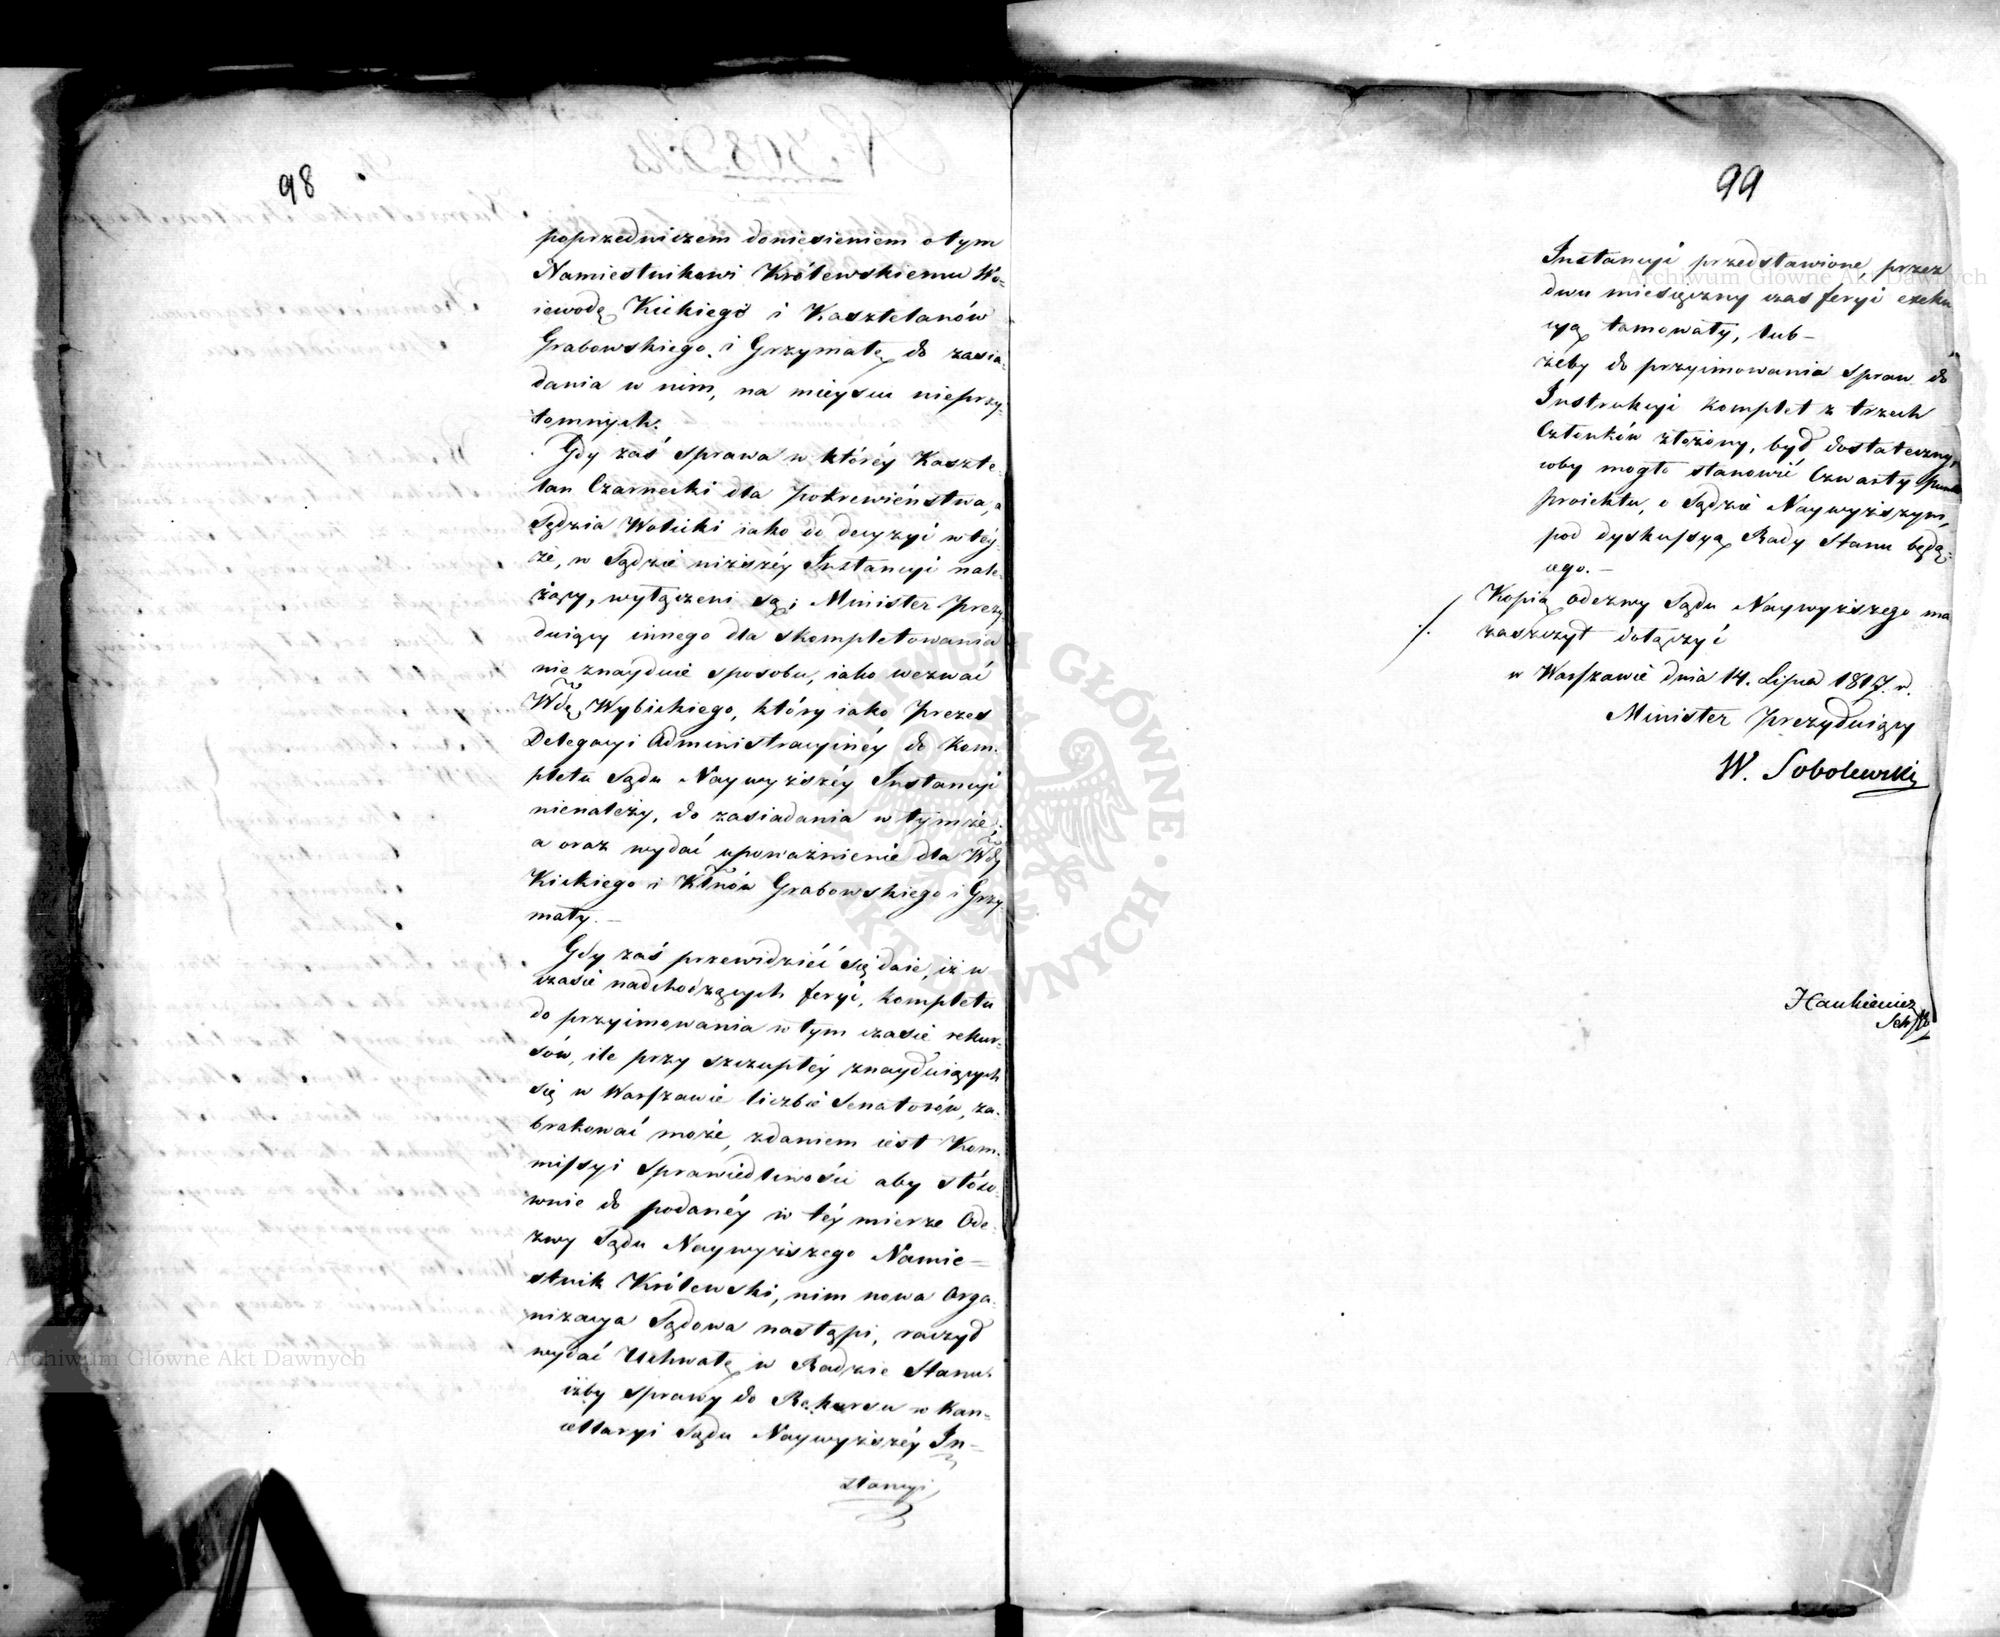 98
poprzedniczem doniesieniem o tym
Namiestnikowi Królewskiemu Wo-
iewodę Kickiego i Kasztelanów
Grabowskiego i Grzymałę do zasia-
dania w nim, na mieyscu nieprzy-
tomnych.
Gdy zaś sprawa w któréy Kaszte-
lan Czarnecki dla pokrewieństwa, a
Sędzia Wolicki iako do decyzyi w téy-
że, w Sądzie niższéy Instancyi nale-
żący, wyłączeni są; Minister Prezy
duiący innego dla skompletowania
nie znayduie sposobu, iako wezwać
Wdę Wybickiego, który iako Prezes
Delegacyi Administracyinéy do kom-
pletu Sądu Naywyższéy Instancyi
nienależy, do zasiadania w tymże;
a oraz wydać upoważnienie dla Wdy
Kickiego i Kłnów Grabowskiego i Grzy-
mały.
Gdy zaś przewidziéć się daie, iż w
czasie nadchodzących feryi, kompletu
do przyimowania w tym czasie rekur-
sów, ile przy szczupłéy znayduiących
się w Warszawie liczbie Senatorów, za-
brakować może, zdaniem iest Kom-
missyi Sprawiedliwości aby stóso-
wnie do podanéy w téy mierze Ode-
zwy Sądu Naywyższego Namie-
stnik Królewski, nim nowa Orga-
nizacya Sądowa nastąpi, raczył
wydać Uchwałę w Radzie Stanu
iżby sprawy do Rekursu w Kan-
cellaryi Sądu Naywyższéy In-
stancyi
99
Instancyi przedstawione, przez
dwu miesięczny czas feryi exeku
cyą tamowały, lub-
żeby do przyimowania spraw do
Instrukcyi komplet z trzech
Członków złożony, był dostateczny,
coby mogło stanowić Czwarty punkt
proiektu, o Sądzie Naywyższym,
pod dyskussyą Rady Stanu będą-
cego.
Kopią odezwy Sądu Naywyższego ma
zaszczyt dołączyć
w Warszawie dnia 14. Lipca 1817. r.
Minister Prezyduiący
W. Sobolewski
Hankiewicz
Archiwum Główne Akt Dawnych
Archiwum Główne Akt Dawnych
ARCHIWUM GŁÓWNE AKT DAWNYCH